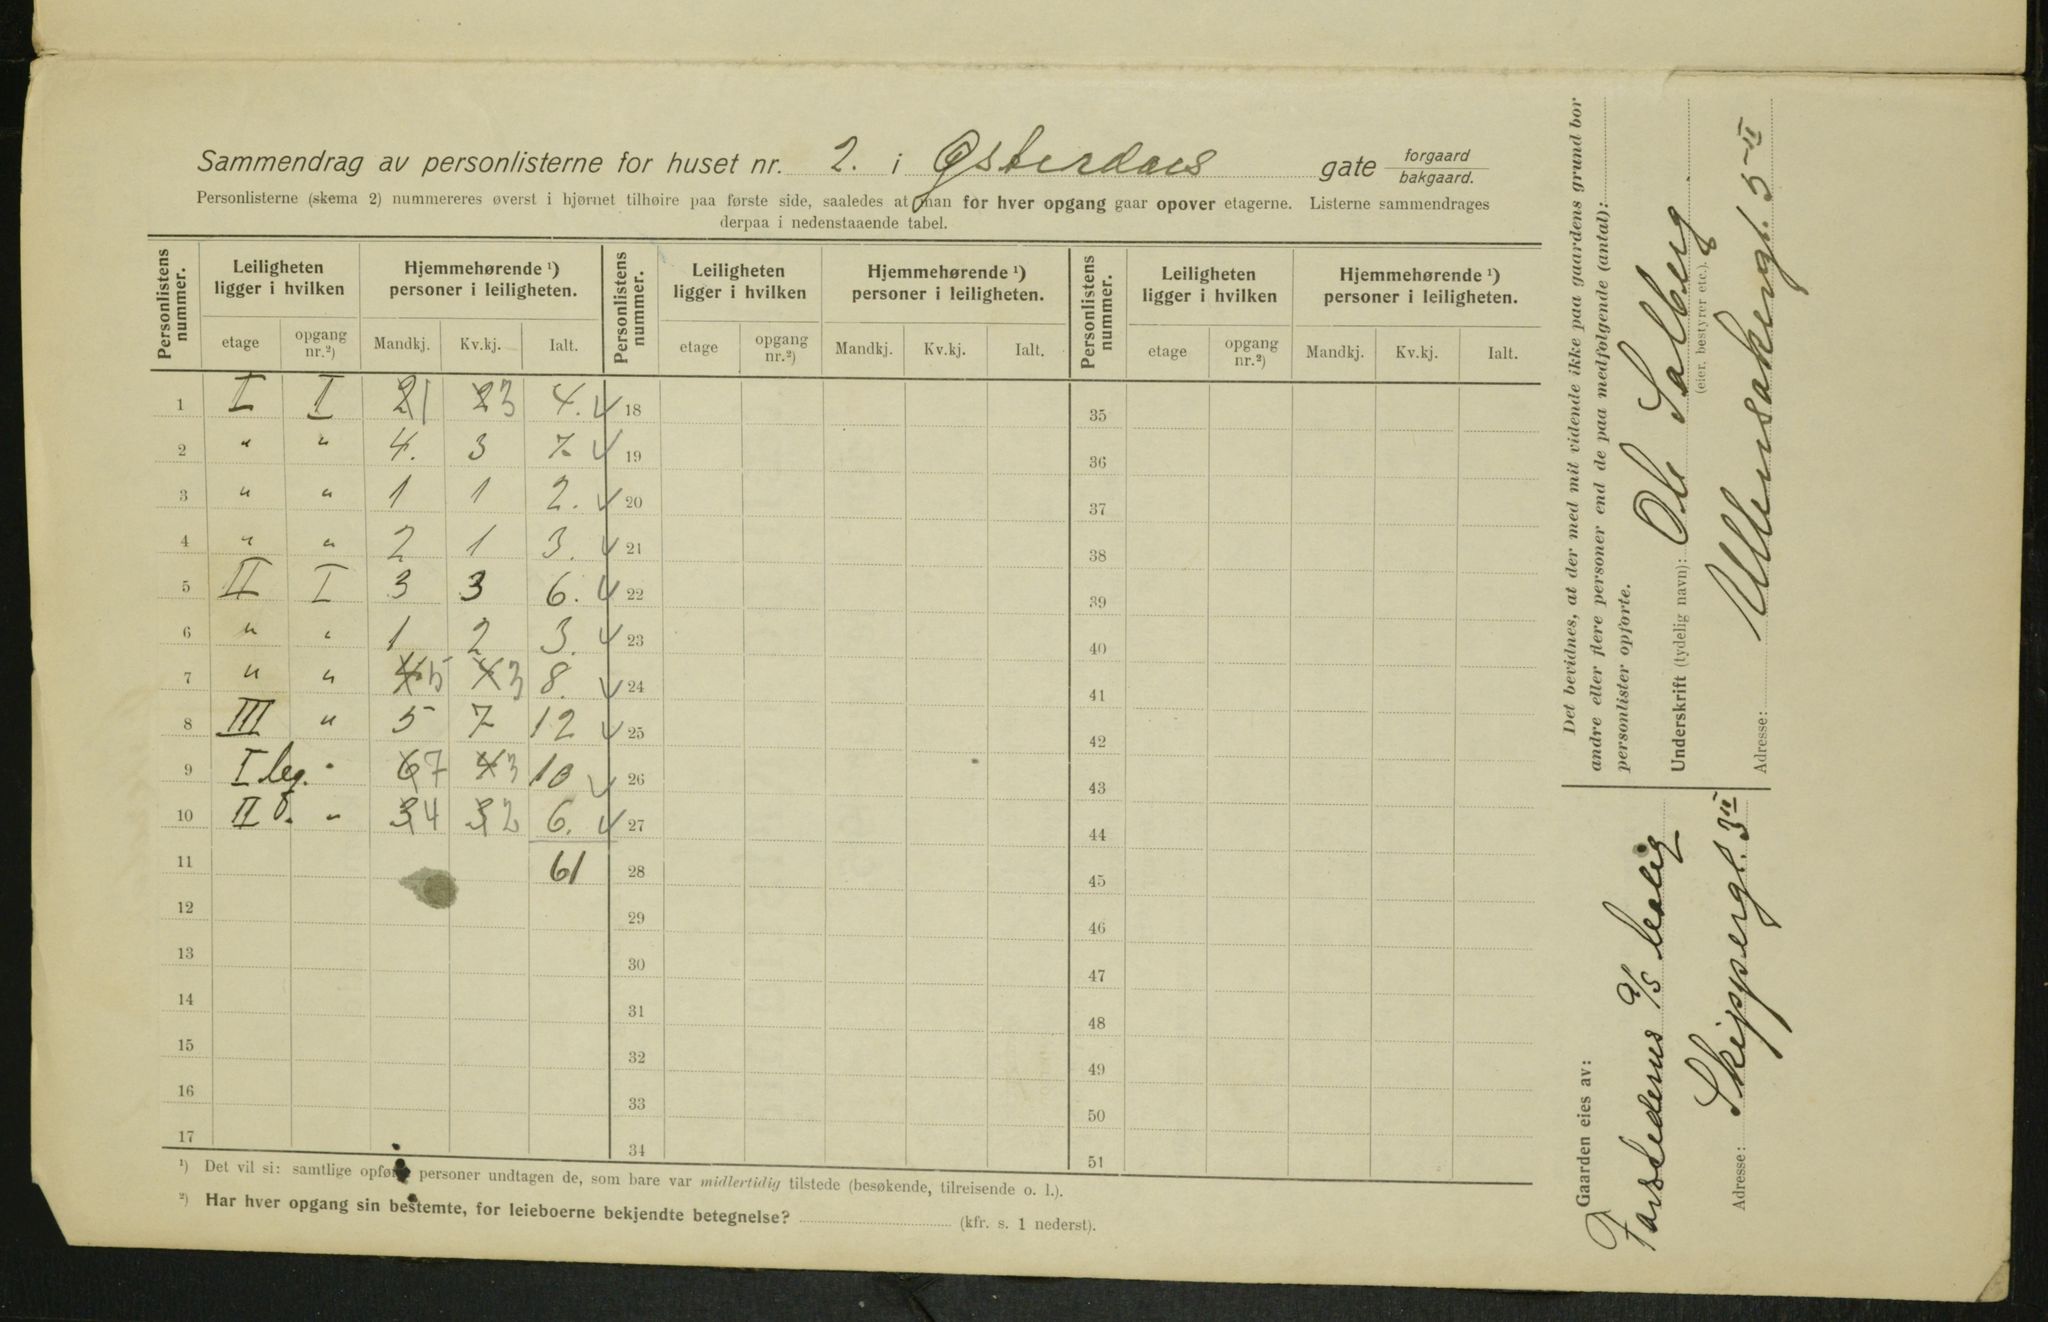 Sammendrag av personlisterne for huset nr. 2. i Østerdals gate forgaard bakgaard.
Personlisterne (skema 2) nummereres øverst i hjørnet tilhøire paa første side, saaledes at man for hver opgang gaar opover etagerne. Listerne sammendrages
derpaa i nedenstaaende tabel.
Personlistens nummer. Leiligheten ligger i hvilken Hjemmehørende ¹) personer i leiligheten. Personlistens nummer. Leiligheten ligger i hvilken Hjemmehørende ¹) personer i leiligheten. Personlistens nummer. Leiligheten ligger i hvilken Hjemmehørende ¹) personer i leiligheten.
etage opgang nr.²) Mandkj. Kv.kj. Ialt. etage opgang nr.²) Mandkj. Kv.kj. Ialt. etage opgang nr.²) Mandkj. Kv.kj. Ialt.
1 I I 2 1 2 3 4. ✓ 18 35
2 " " 4. 3 7 ✓ 19 36
3 " " 1 1 2. ✓ 20 37
4 " " 2 1 3. ✓ 21 38
5 II I 3 3 6. ✓ 22 39
6 " " 1 2 3. ✓ 23 40
7 " " 4 5 4 3 8. ✓ 24 41
8 III " 5 7 12 ✓ 25 42
9 I leg. " 6 7 4 3 10 ✓ 26 43
10 II " " 3 4 3 2 6. ✓ 27 44
11 61 28 45
12 29 46
13 30 47
14 31 48
15 32 49
16 33 50
17 34 51
¹) Det vil si: samtlige opførte personer undtagen de, som bare var midlertidig tilstede (besøkende, tilreisende o. l.).
²) Har hver opgang sin bestemte, for leieboerne bekjendte betegnelse? (kfr. s. 1 nederst).
Det bevidnes, at der med mit vidende ikke paa gaardens grund bor
andre eller flere personer end de paa medfølgende (antal):
personlister opførte.
Underskrift (tydelig navn): Ole Solberg.
(eier, bestyrer etc.).
Adresse: Ullensakergt. 5 II
Gaarden eies av:
A/S
Adresse: Skippergt. 3 II